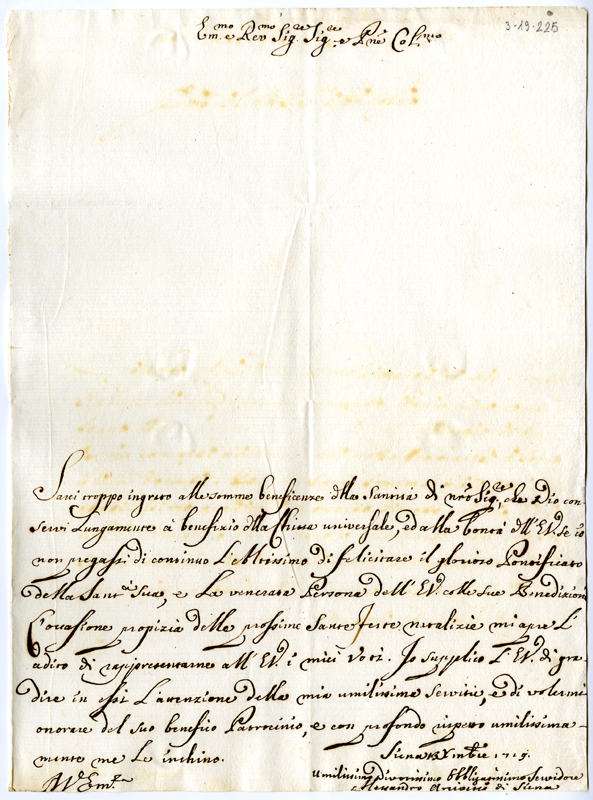 3-19-225
Em.mo e Rev.mo Sig.re Sig.re e Pne Col.mo
Sarei troppo ingrato alle somme beneficenze della Santità di nro Sig.re, che Dio con-
servi lungamente à benefizio della Chiesa universale, ed alla bontà dell'EV. se io
non pregassi di continuo L'Altissimo di felicitare il glorioso Pontificato
della Sant.à Sua, e La venerata Persona dell'EV. colle sue Benedizioni
L'occasione propizia delle prossime Sante feste natalizie mi apre L'
adito di rappresentarne all'EV. i miei Voti. Io supplico L'EV. di gra-
dire in essi L'attenzione della mia umilissima servitù, e di volermi
onorare del suo benefico Patrocinio, e con profondo rispetto umilissima-
mente me Le inchino.
Siena Xmbre 1715.
Umilissimo Divotissimo Obbligatissimo Servidore
Alessandro Arcivescovo di Siena